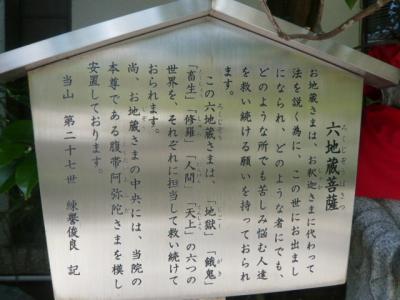 六地蔵菩薩
ろくじぞうぼさつ
お地蔵さまは、お釈迦さまに代わって
法を説く為に、この世にお出まし
になられ、どのような者にでも、
どのような所でも苦しみ悩む人達
を救い続ける願いを持っておられ
ます。
この六地蔵さまは、「地獄」「餓鬼」
「畜生」「修羅」「人間」「天上」の六つの
世界を、それぞれに担当して救い続けて
おられます。
尚、お地蔵さまの中央には、当院の
本尊である腹帯阿弥陀さまを模し
安置しております。
当山 第二十七世 練誉俊良 記